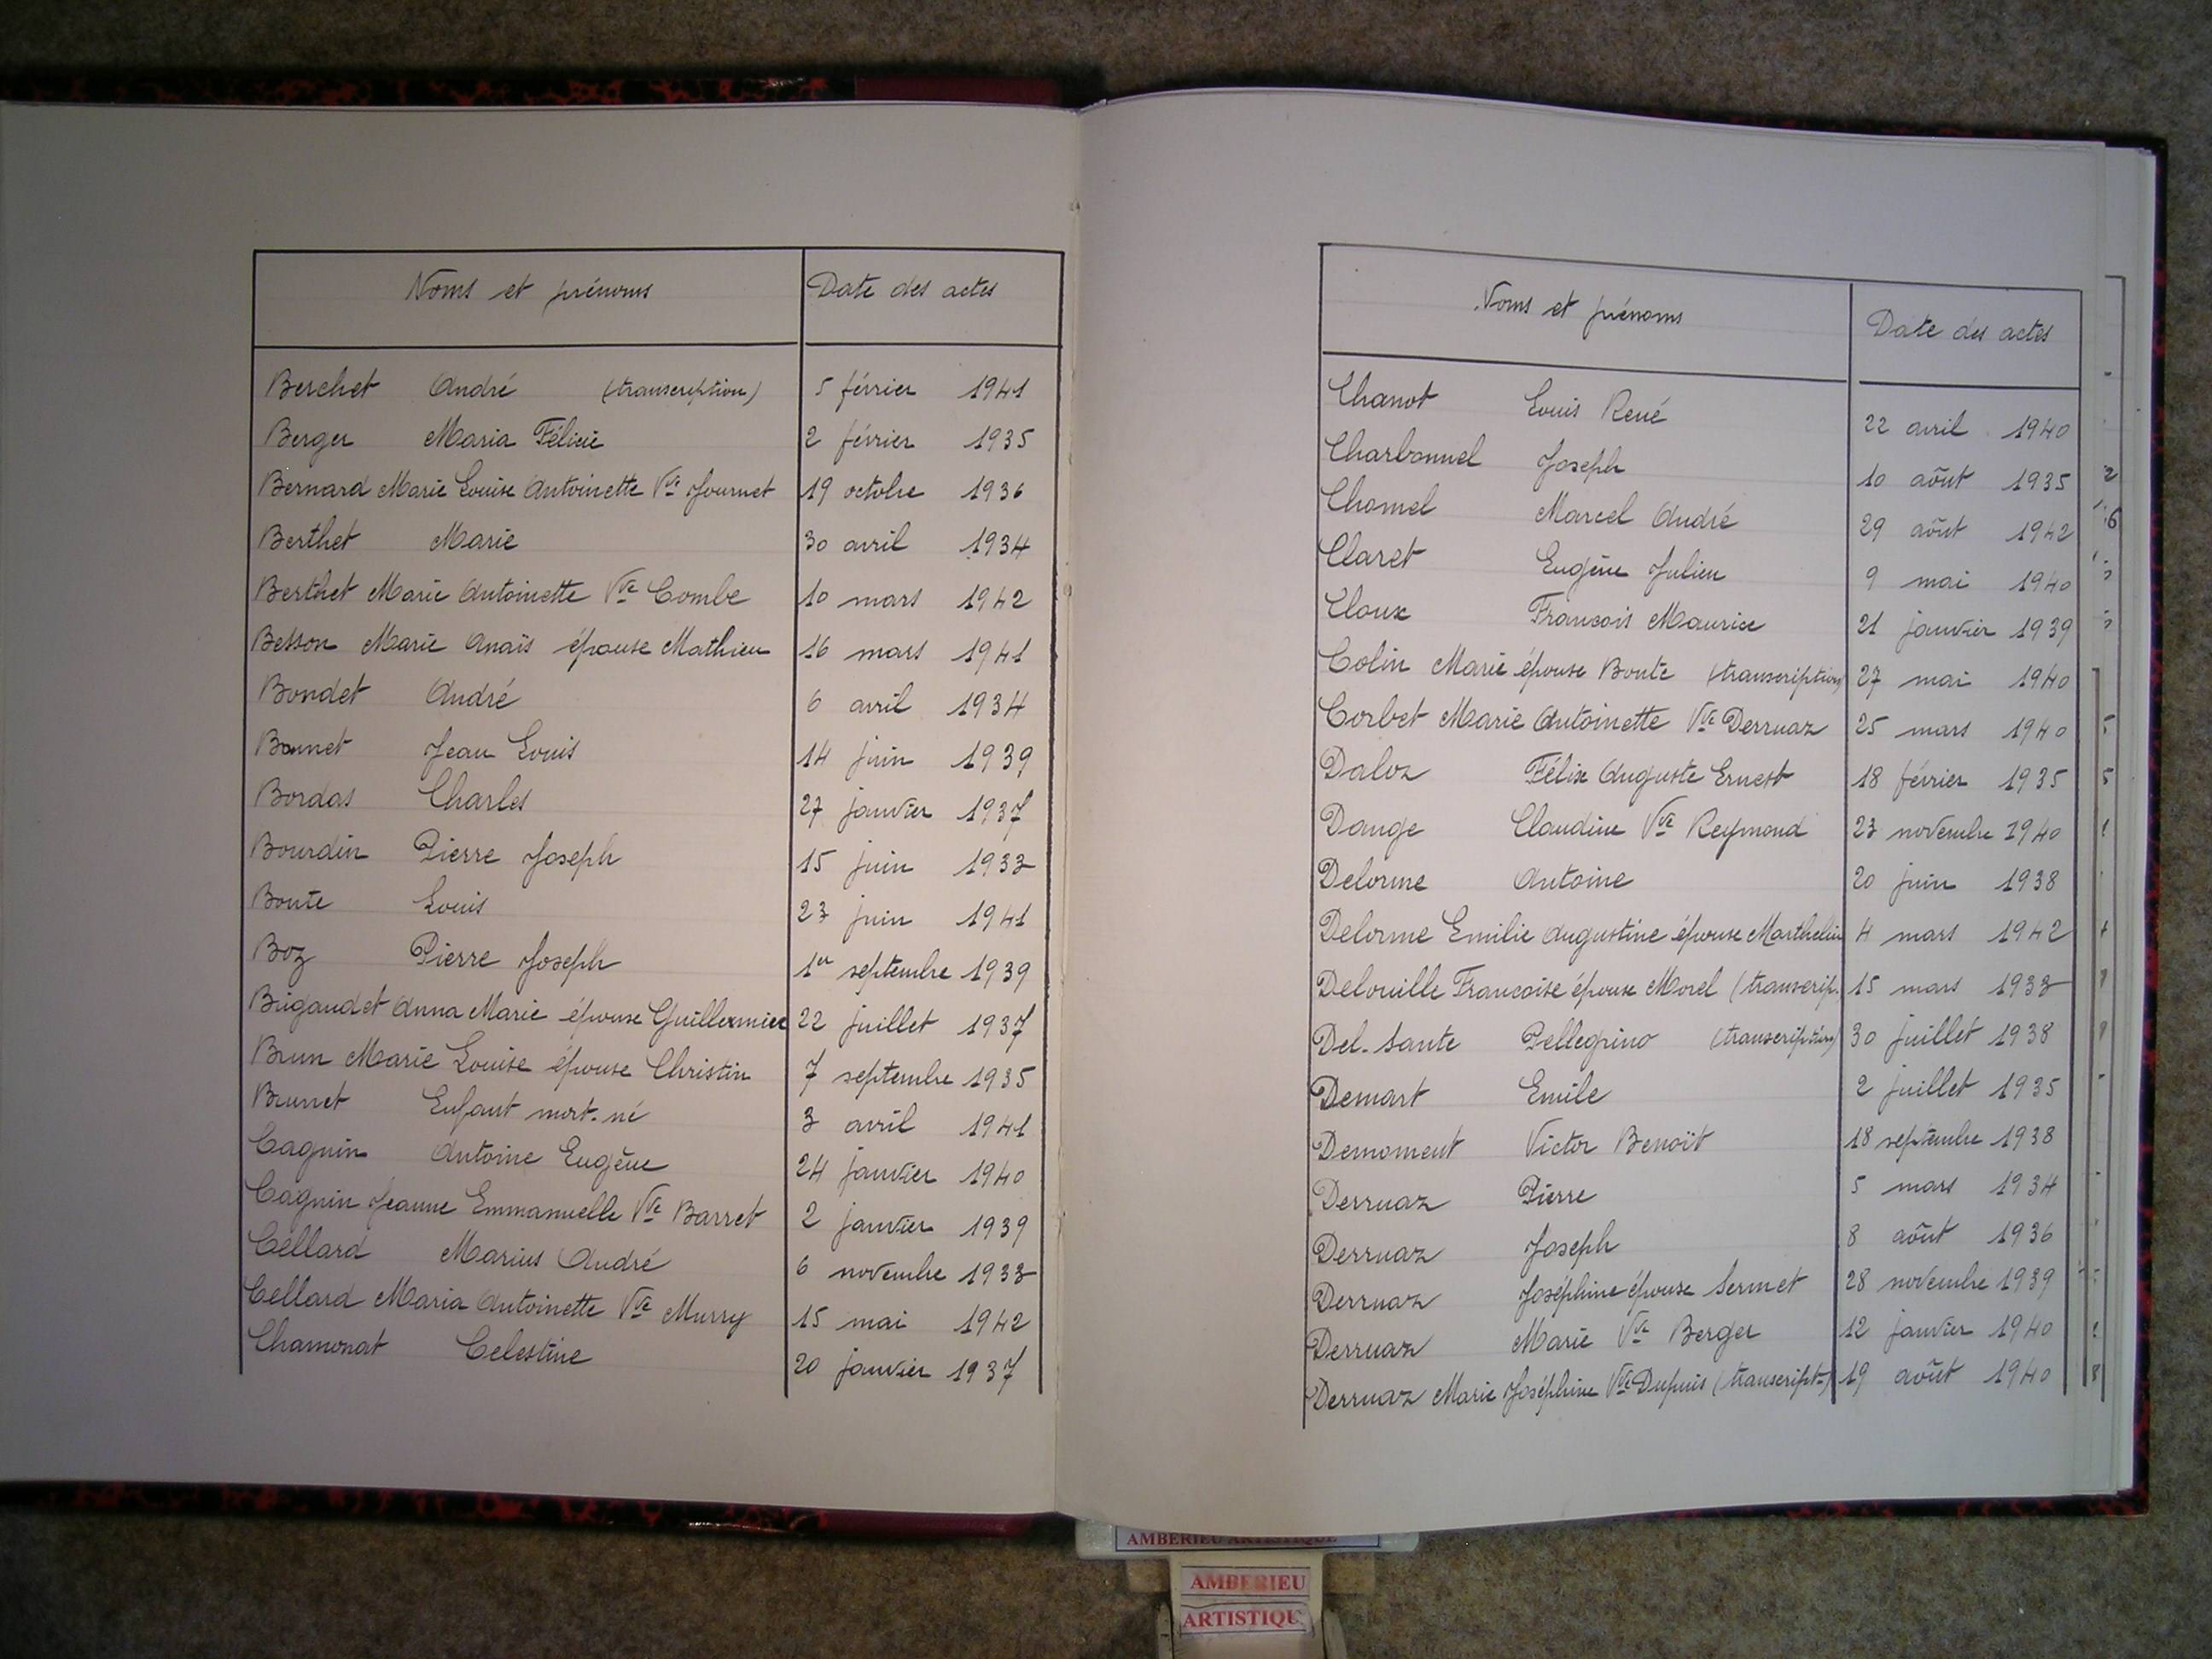 Noms et prénoms Date des actes
Berchet André (transcription) 5 février 1941
Berger Maria Félicie 2 février 1935
Bernard Marie Louise Antoinette Vve Journet 19 octobre 1936
Berthet Marie 30 avril 1934
Berthet Marie Antoinette Vve Combe 10 mars 1942
Besson Marie Anaïs épouse Mathieu 16 mars 1941
Bondet André 6 avril 1934
Bonnet Jean Louis 14 juin 1939
Bordas Charles 27 janvier 1937
Bourdin Pierre Joseph 15 juin 1933
Boute Louis 23 juin 1941
Boz Pierre Joseph 1er septembre 1939
Brigaudet Anna Marie épouse Guillermier 22 juillet 1937
Brun Marie Louise épouse Christin 7 septembre 1935
Brunet Enfant mort-né 3 avril 1941
Cagnin Antoine Eugène 24 janvier 1940
Cagnin Jeanne Emmanuelle Vve Barret 2 janvier 1939
Cellard Marius André 6 novembre 1933
Cellard Maria Antoinette Vve Murry 15 mai 1942
Chamonat Celestine 20 janvier 1937
Noms et prénoms Date des actes
Chanot Louis René 22 avril 1940
Charbonnel Joseph 10 aôut 1935
Chomel Marcel André 29 aôut 1942
Claret Eugène Julien 9 mai 1940
Cloux Francois Maurice 21 janvier 1939
Colin Marie épouse Boute (transcription) 27 mai 1940
Corbet Marie Antoinette Vve Derruaz 25 mars 1940
Daloz Félix Auguste Ernest 18 février 1935
Dange Claudine Vve Reymond 23 novembre 1940
Delorme Antoine 20 juin 1938
Delorme Emilie Augustine épouse Marthelin 4 mars 1942
Delouille Francoise épouse Morel (transcrip. 15 mars 1933
Del-Sante Pellegrino (transcription) 30 juillet 1938
Demart Emile 2 juillet 1935
Demoment Victor Benoït 18 septembre 1938
Derruaz Pierre 5 mars 1934
Derruaz Joseph 8 aôut 1936
Derruaz Joséphine épouse Sermet 28 novembre 1939
Derruaz Marie Vve Berger 12 janvier 1940
Derruaz Marie Joséphine Vve Dupuis (transcript-) 19 aôut 1940
AMBERIEU ARTISTIQUE
AMBERIEU
ARTISTIQU